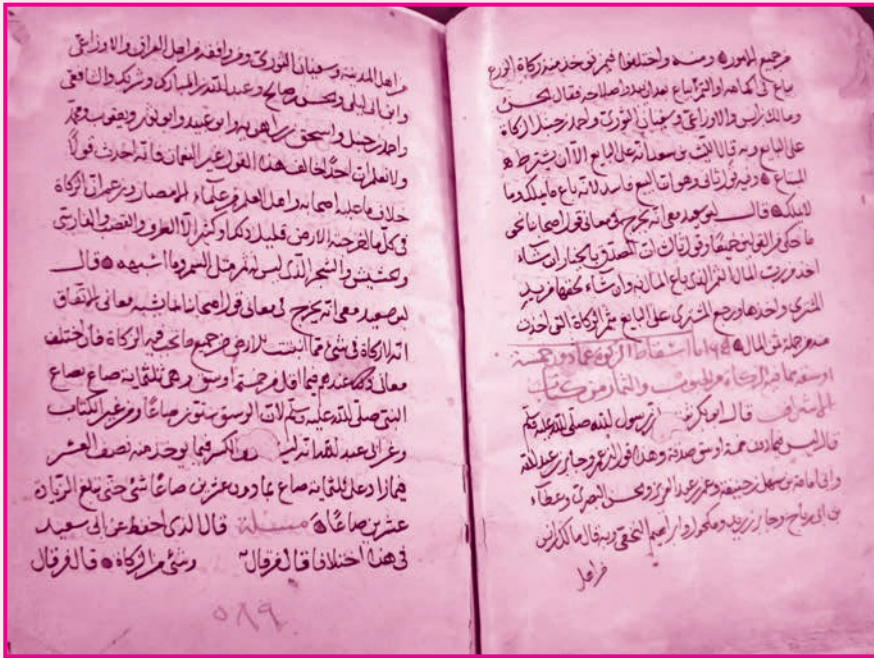 من جميع الأمور ومنه واختلفوا فيمن تؤخذ منه زكاة الزرع
يباع في اكمامه او الثمر يباع بعد ان يبدو اصلاحه فقال الحسن
ومالك بن انس والاوزاعي وسفيان الثوري واحمد بن حنبل الزكاة
على البايع وبه قال الليث بن سعد انه على البايع الا ان يشترط
المبتاع وفيه قول ثاني وهو ان البيع فاسد لانه باع ما يملك وما
لا يملك قال ابو سعيد معي انه يخرج في معاني قول اصحابنا نحو
ما حكي من القولين جميعا وقول قال ان المصدق بالخيار ان شاء
اخذ من رب المال الثمر الذي باع المال به وان شاء اخذها من يد
المشتري واخذها ورجع المشتري على البايع بثمن الزكاة التي اخذت
منه من جملة ثمن المال اما اسقاط الزكاة عما دون خمسة
اوسق مما فيه الزكاة من الحبوب والثمار من كتاب
الاشراف قال ابو بكر ان رسول الله صلى الله عليه وسلم
قال ليس فيما دون خمسة اوسق صدقة وهذا قول ابن عمر وجابر بن عبد الله
وابي امامة بن سهل بن حنيف وعمر بن عبد العزيز والحسن البصري وعطاء
بن ابي رباح وجابر بن زيد ومكحول وابراهيم النخعي وبه قال مالك بن انس
من اهل
من اهل المدينة وسفيان الثوري ومن وافقه من اهل العراق والاوزاعي
وابن ابي ليلى والحسن بن صالح وعبد الله بن المبارك وشريك والشافعي
واحمد بن حنبل واسحق بن راهويه وابو عبيد وابو ثور ويعقوب ومحمد
ولا نعلم ان احدا خالف هذا القول غير النعمان فانه احدث قولا
خلاف ما عليه اصحابه واهل العلم من علماء الامصار وزعم ان الزكاة
في كل ما اخرجته الارض قليل ذلك وكثير الا الحطب والقصب والفارسي
والحشيش والشجر الذي ليس له ثمر مثل السمر وما اشبهه قال
ابو سعيد معي انه يخرج في معاني قول اصحابنا بما يشبه معاني الاتفاق
انه لا زكاة في شيء مما انبتت الارض من جميع ما تجب فيه الزكاة فان اختلف
معاني ذلك عندهم فيما اقل من خمسة اوسق وهي ثلثماية صاع بصاع
النبي صلى الله عليه وسلم لان الوسق ستون صاعا ومن غير الكتاب
وعن ابي عبد الله انه ليس في الكسر فيما يوخذ منه نصف العشر
فما زاد على ثلثماية صاع مما دون عشرين صاعا شيء حتى تبلغ الزيادة
عشرين صاعا مسئلة قال الذي احفظ عن ابي سعيد
في هذا اختلافا قال من قال وشيء من الزكاة قال من قال
٥٨٩